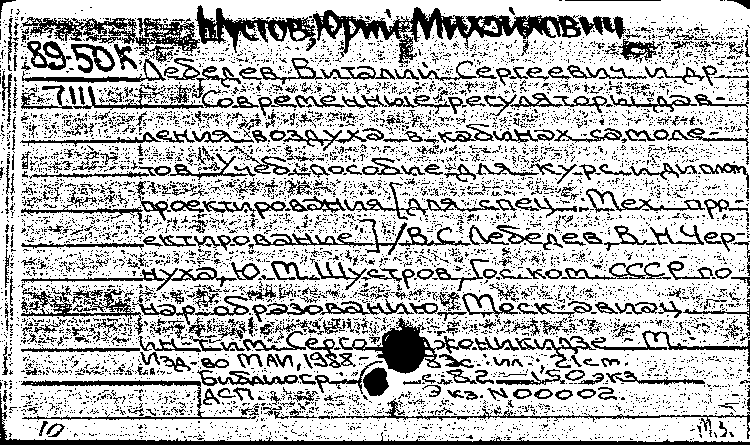 Шустов, Юрий Михайлович
89-50К
7.III
Лебедев, Виталий Сергеевич и др
Современные регуляторы дав-
ления воздуха в кабинах самоле-
тов Учеб. пособие для курс. и диплом
проектирования [для спец. "Мех. про-
ектирование"] / В.С. Лебедев, В.Н. Чер-
нуха, Ю.М. Шустров. Гос. ком. СССР по
нар. образованию, Моск авиац.
ин-т им. Серго - М. :
Изд-во МАИ, 1988. - 83 с. : ил. ; 21 см.
Библиогр. с. 82 - 150 экз
ДСП. Экз. N 00002.
10
М.З.